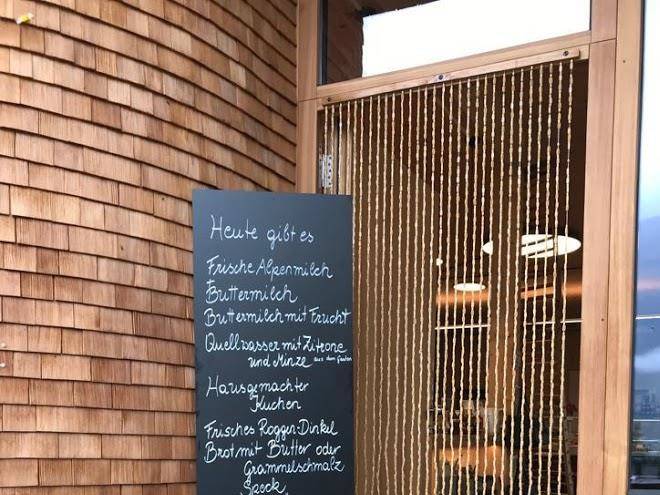 Heute gibt es
Frische Alpenmilch
Buttermilch
Buttermilch mit Frucht
Quellwasser mit Zitrone
und Minze aus dem Garten
Hausgemachter
Kuchen
Frisches Roggen-Dinkel
Brot mit Butter oder
Grammelschmalz
Speck